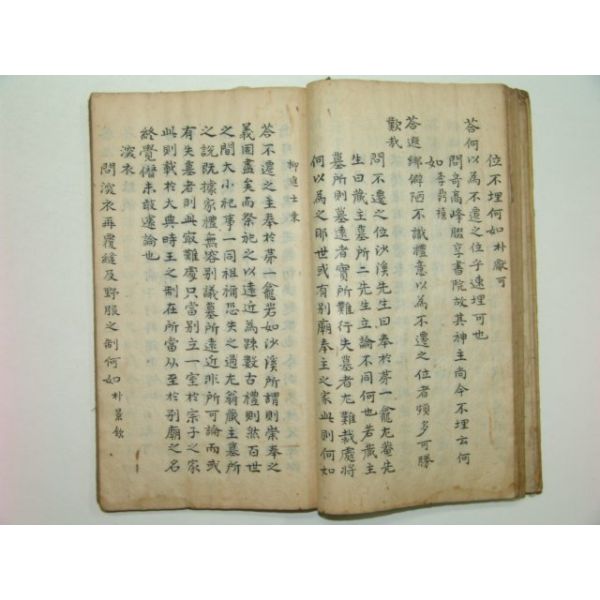 位不埋何如 朴廌可
答何以為不遷之位乎速埋可也
問奇高峰腏享書院故其神主尚今不埋云何
如 李爾
答遐鄉僻陋不識禮意以為不遷之位者頗多可勝
歎哉
問不遷之位沙溪先生曰奉於第一龕尤菴先
生曰藏主墓所二先生立論不同何也若藏主
墓所則墓遠者實所難行失墓者尤難裁處將
何以為之耶世或有別廟奉主之家此則何如
柳進士東
答不遷之主奉於第一龕若如沙溪所謂則崇奉之
義固盡矣而祭祀之以遠近為疎數古禮則然百世
之間大小祀事一同祖禰恐失之過尤翁藏主墓所
之說既據家禮無容別議墓所遠近非所可論而或
有失墓者則與寢難處只當別立一室於宗子之家
此則載於大典時王之制在所當從至於別廟之名
終覺僭未敢遽論也
深衣
問深衣再覆縫及野服之制何如 朴景欽